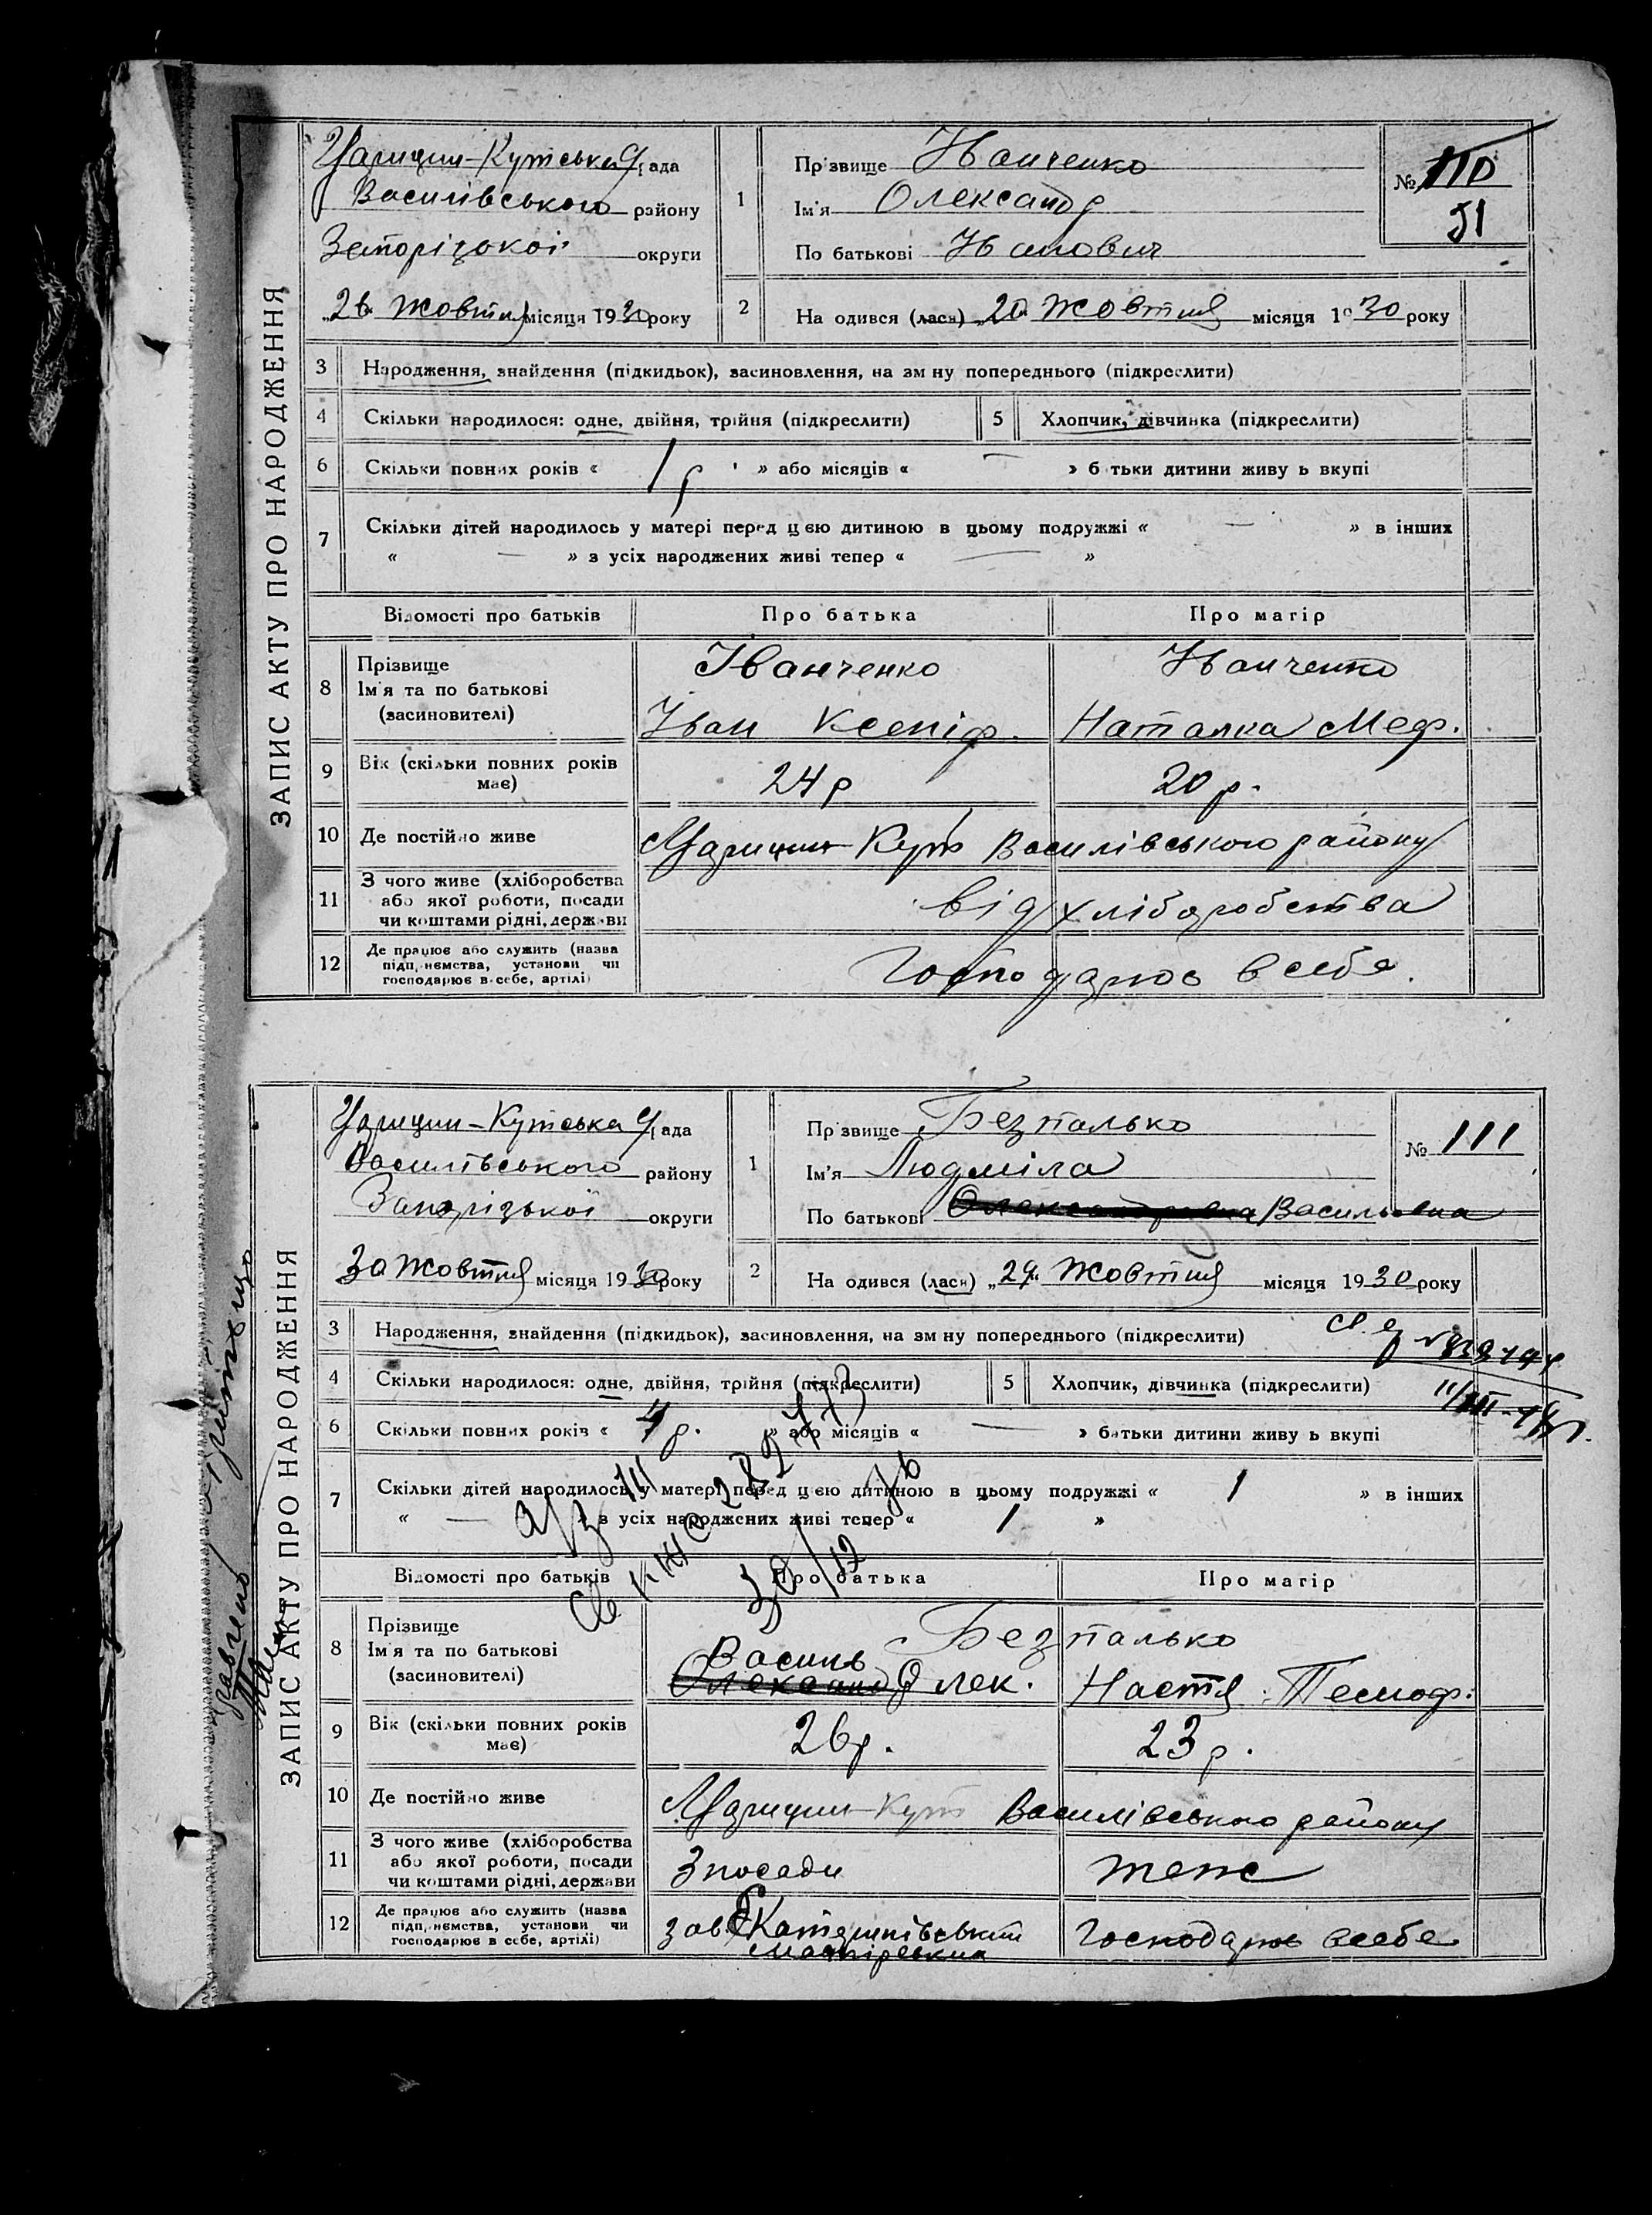 ЗАПИС АКТУ ПРО НАРОДЖЕННЯ
Царицин-Кутська рада
Василівського району
Запорізької округи
26 Жовтня місяця 1930 року
1
Прізвище Іванченко
Ім'я Олександр
По батькові Іванович
№ 110
51
2
На одився (лася) „20" Жовтня місяця 1930 року
3 Народження, знайдення (підкидьок), засиновлення, на зм ну попереднього (підкреслити)
4 Скільки народилося: одне, двійня, трійня (підкреслити) 5 Хлопчик, дівчинка (підкреслити)
6 Скільки повних років « 1 р » або місяців « — » б тьки дитини живу ь вкупі
7 Скільки дітей народилось у матері перед цією дитиною в цьому подружжі « — » в інших
« — » з усіх народжених живі тепер « — »
Відомості про батьків Про батька Про матір
8 Прізвище
Ім'я та по батькові
(засиновителі)
Іванченко Іванченко
Іван Ксеніф. Наталка Меф.
9 Вік (скільки повних років має) 24 р 20 р.
10 Де постійно живе Царицин-Кут Василівського району
11 З чого живе (хліборобства
або якої роботи, посади
чи коштами рідні, держави
від хліборобства
12 Де працює або служить (назва
підприємства, установи чи
господарює в себе, артілі)
Господарює в себе.
ЗАПИС АКТУ ПРО НАРОДЖЕННЯ
Царицин-Кутська рада
Василівського району
Запорізької округи
30 Жовтня місяця 1930 року
1
Прізвище Безпалько
Ім'я Людміла
По батькові Олександровна Васильовна
№ 111
2
На одився (лася) „29" Жовтня місяця 1930 року
3 Народження, знайдення (підкидьок), засиновлення, на зм ну попереднього (підкреслити)
4 Скільки народилося: одне, двійня, трійня (підкреслити) 5 Хлопчик, дівчинка (підкреслити)
6 Скільки повних років « 4 р. » або місяців « — » батьки дитини живу ь вкупі
7 Скільки дітей народилось у матері перед цією дитиною в цьому подружжі « 1 » в інших
« — » з усіх народжених живі тепер « 1 »
Відомості про батьків Про батька Про матір
8 Прізвище
Ім'я та по батькові
(засиновителі)
Безпалько
Василь
Олександ Олек. Настя
9 Вік (скільки повних років має) 26 р. 23 р.
10 Де постійно живе Царицин-Кут Василівського району
11 З чого живе (хліборобства
або якої роботи, посади
чи коштами рідні, держави
З посади теж
12 Де працює або служить (назва
підприємства, установи чи
господарює в себе, артілі)
зав Господарює в себе